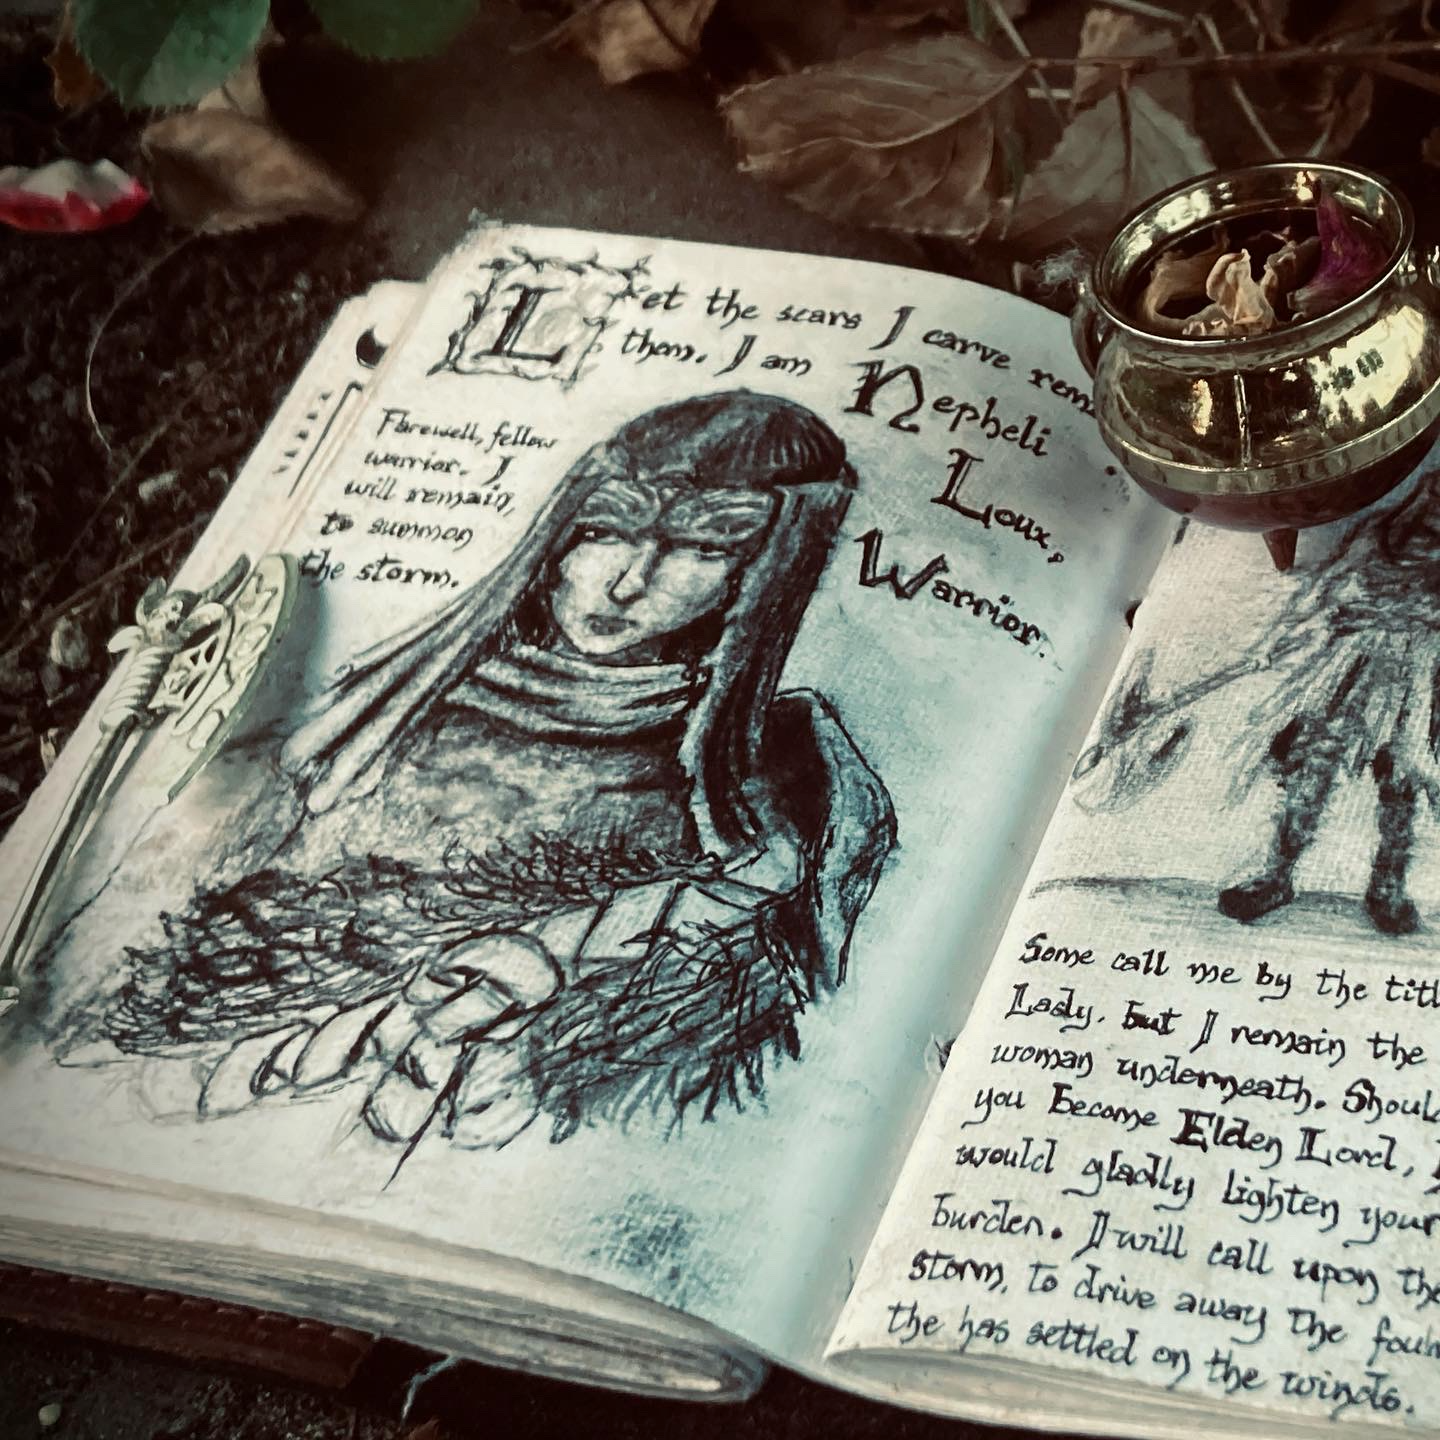 Let the scars I carve
them. I am
Nepheli
Loux,
Warrior.
Farewell, fellow
warrior. I
will remain,
to summon
the storm.
Some call me by the
Lady, but I remain the
woman underneath.
you become Elden Lord,
would gladly lighten your
burden. I will call upon the
storm, to drive away the
the has settled on the winds.